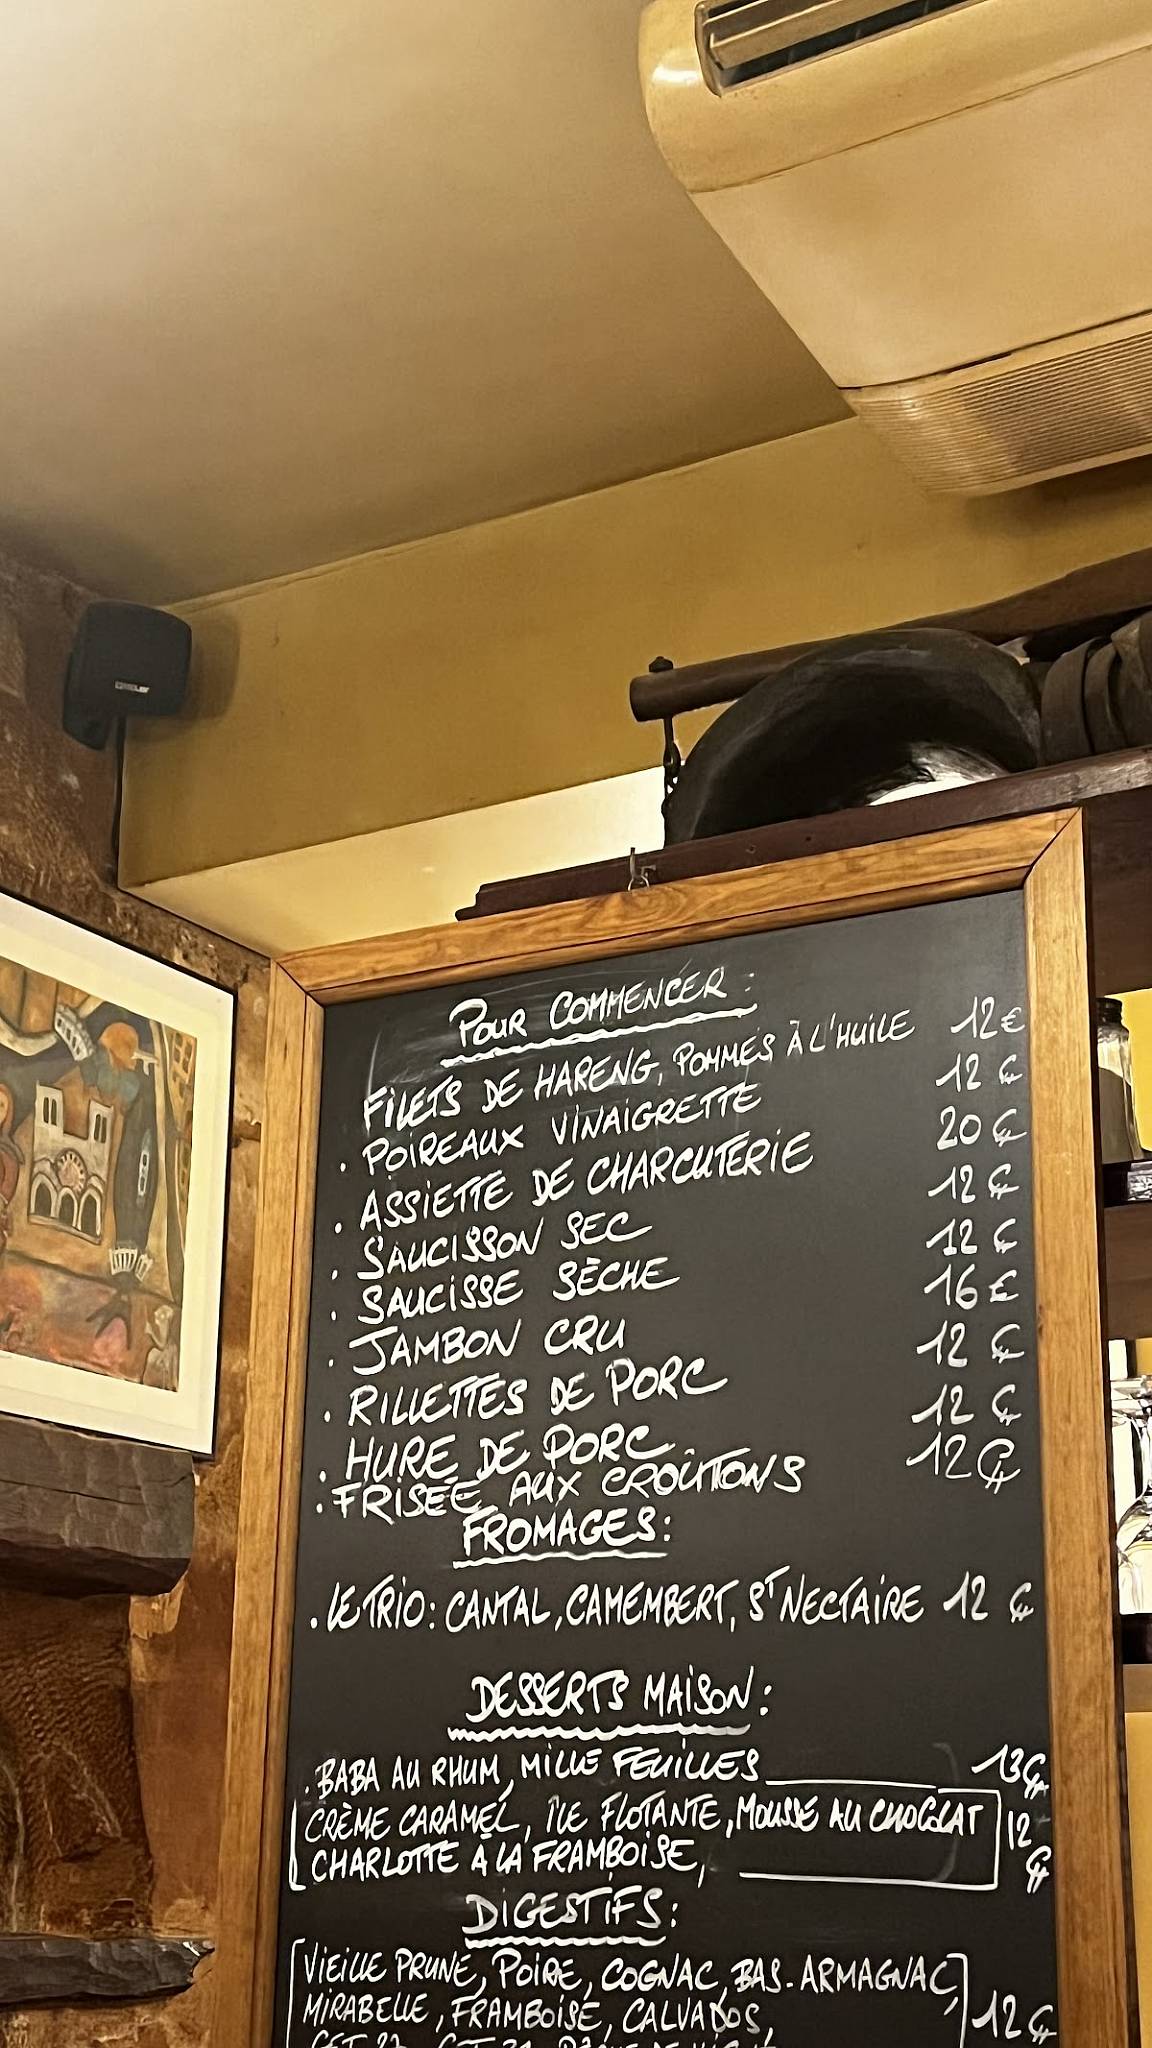 POUR COMMENCER :
FILETS DE HARENG, POMMES À L'HUILE 12€
. POIREAUX VINAIGRETTE 12 €
. ASSIETTE DE CHARCUTERIE 20 €
. SAUCISSON SEC 12 €
. SAUCISSE SÈCHE 12 €
. JAMBON CRU 16 €
. RILLETTES DE PORC 12 €
. HURE DE PORC 12 €
. FRISÉE AUX CROÛTONS 12 €
FROMAGES :
. LE TRIO : CANTAL, CAMEMBERT, ST NECTAIRE 12 €
DESSERTS MAISON :
. BABA AU RHUM, MILLE FEUILLES 13€
CRÈME CARAMEL, ÎLE FLOTANTE, MOUSSE AU CHOCOLAT 12
CHARLOTTE À LA FRAMBOISE, €
DIGESTIFS :
VIEILLE PRUNE, POIRE, COGNAC, BAS-ARMAGNAC,
MIRABELLE, FRAMBOISE, CALVADOS, 12 €